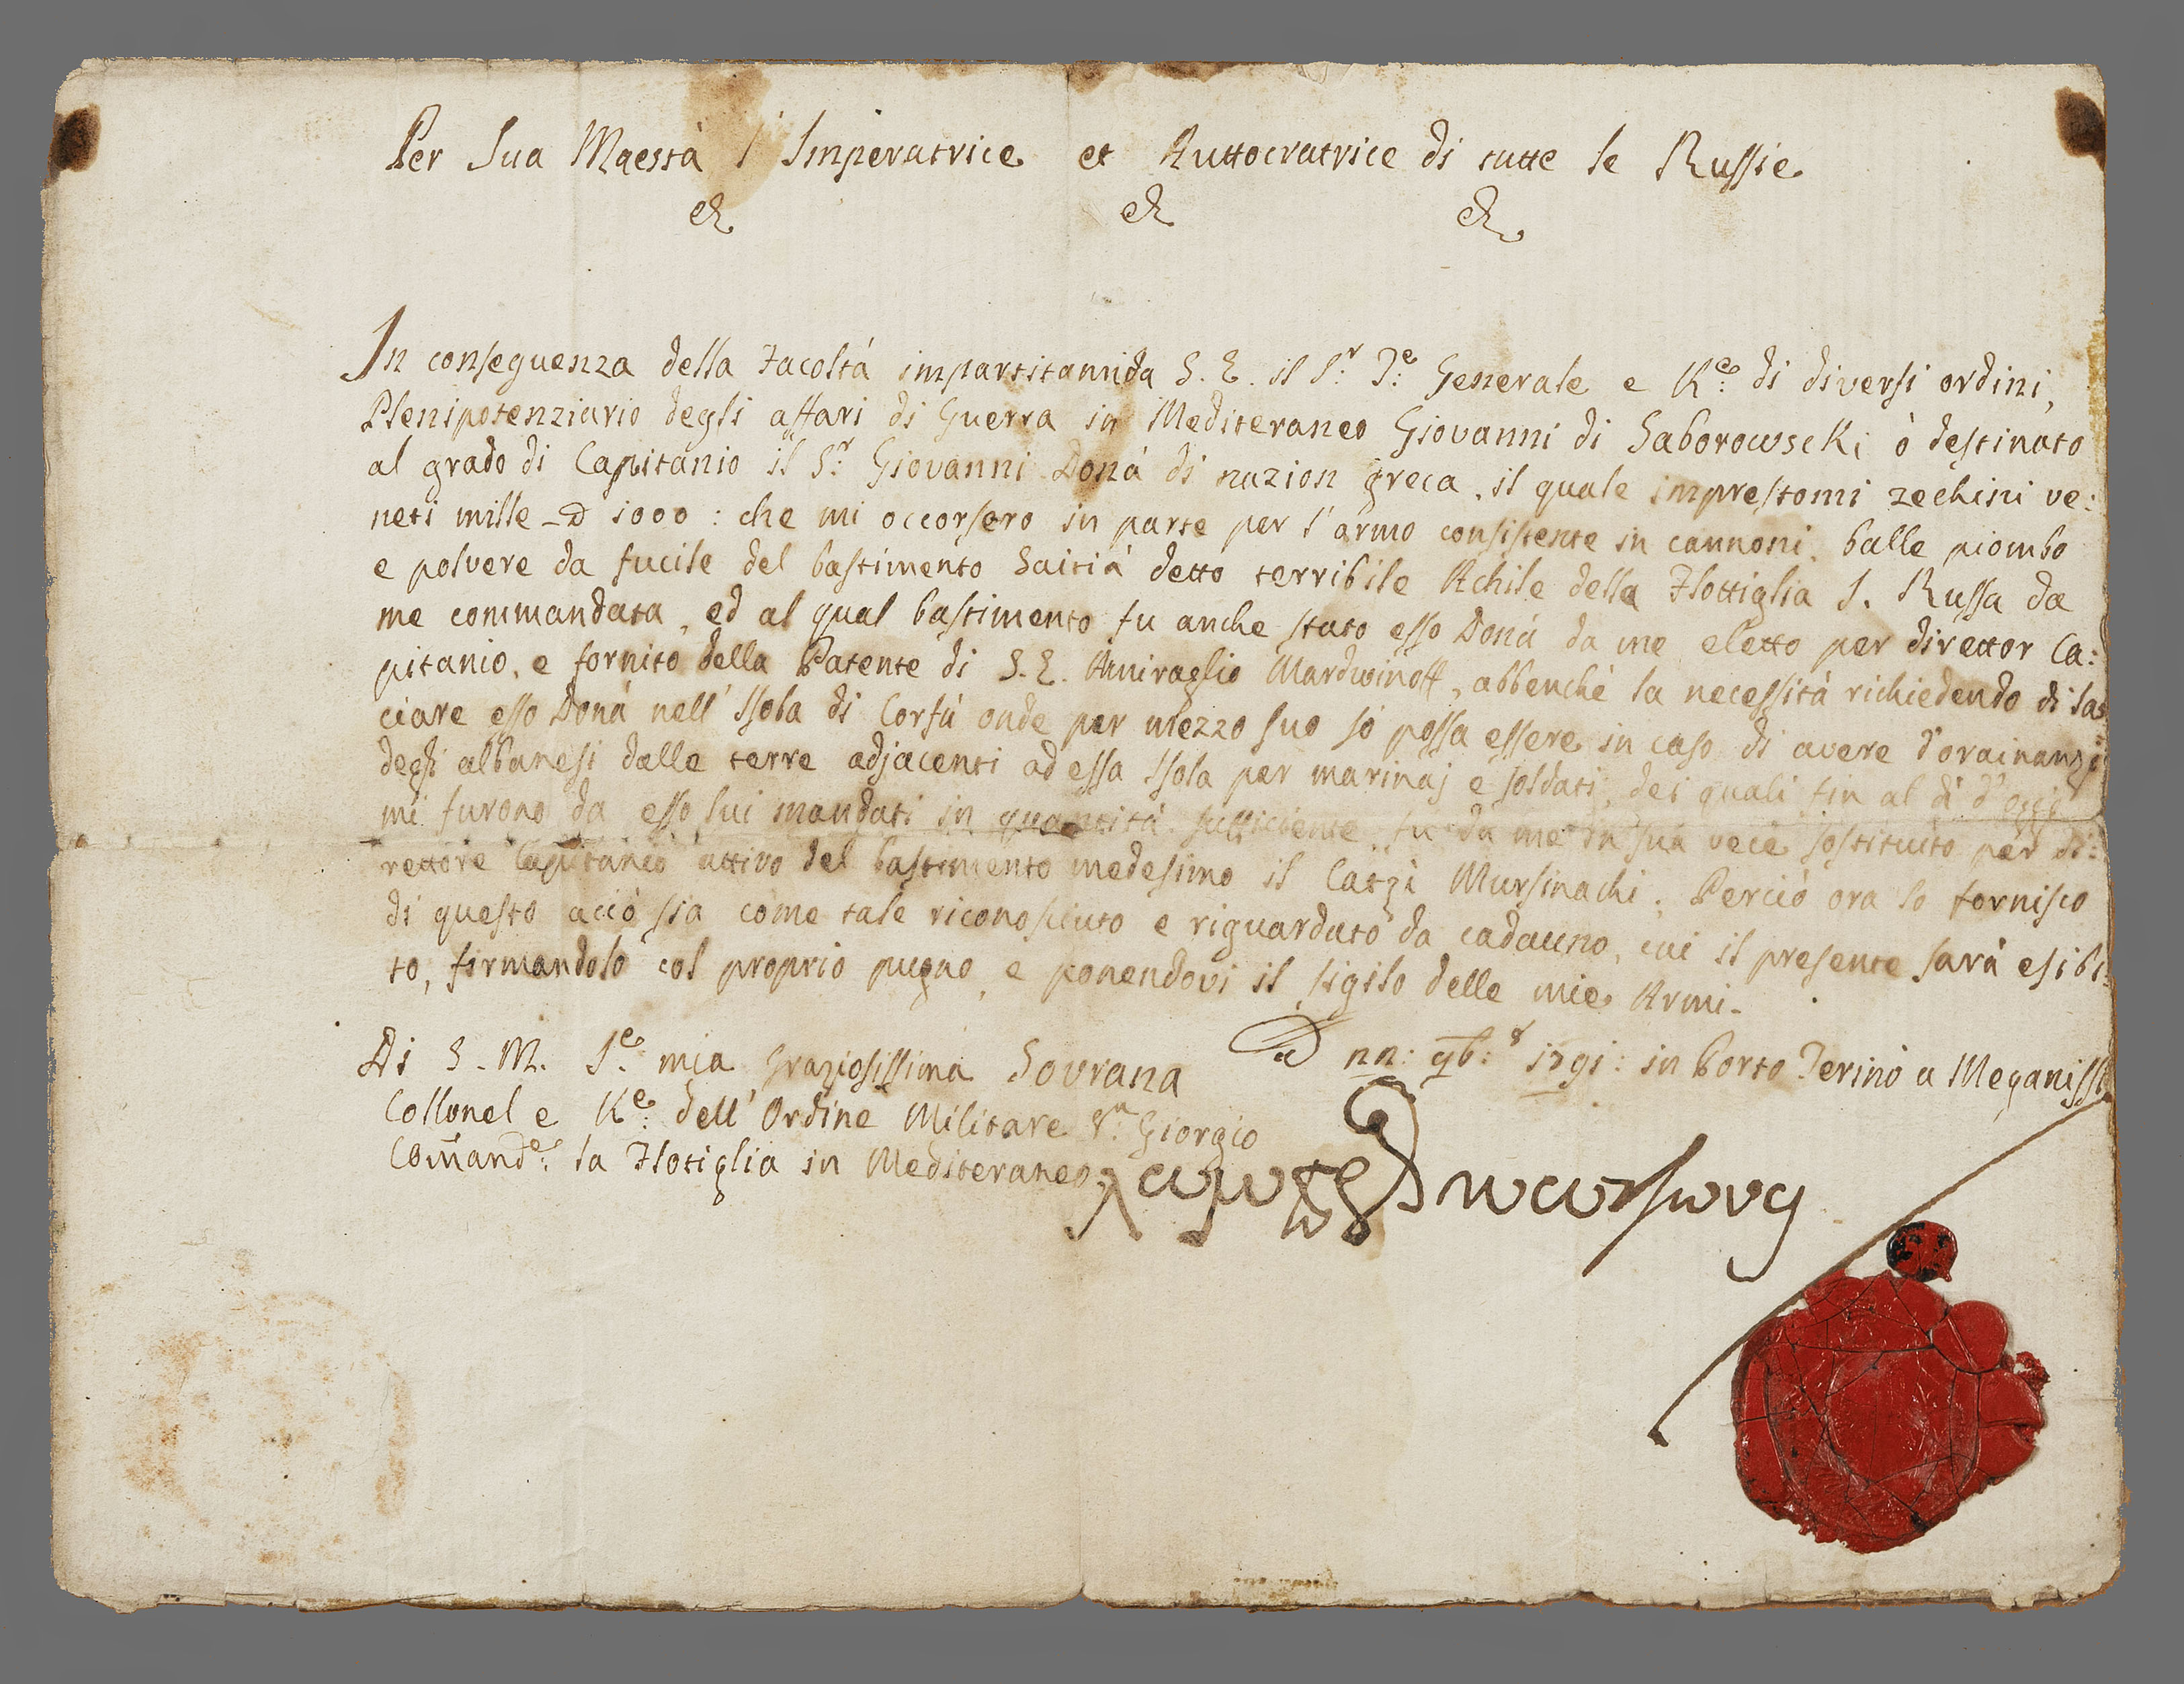 Per Sua Maestà l' Imperatrice et Auttocratrice di tutte le Russie
&c &c &c
In conseguenza della Facoltà impartitami da S. E. il S.r T.e Generale e K.e di diversi ordini,
Plenipotenziario degli affari di Guerra in Mediteraneo Giovanni di Saborowscki ò destinato
al grado di Capitanio il S.r Giovanni Donà di nazion greca, il quale imprestomi zechini ve:
neti mille 1000: che mi occorsero in parte per l'armo consistente in cannoni, balle piombo
e polvere da fucile del bastimento Saitià detto terribile Achile della Flottiglia I. Russa da
me commandata, ed al qual bastimento fu anche stato esso Donà da me eletto per direttor Ca:
pitanio, e fornito della Patente di S. E. Amiraglio Mardwinoff, abbenchè la necessità richiedendo di las:
ciare esso Donà nell' Isola di Corfù onde per mezzo suo io possa essere in caso di avere d'orainanzi
degli albanesi dalle terre adjacenti ad essa Isola per marinaj e soldati, dei quali fin al dì d'oggi
mi furono da esso lui mandati in quantità sufficiente, fu da me in sua vece sostituito per di:
rettore Capitanio attivo del bastimento medesimo il Catzì Mursinachi; Perciò ora lo fornisco
di questo acciò sia come tale riconosciuto e riguardato da cadauno, cui il presente sarà esibi:
to, firmandolo col proprio pugno, e ponendovi il sigilo delle mie Armi.
nn: 9b:r 1791: in Porto Terinò a Meganissi
Di S. M. I.e mia Graziosissima Sovrana
Collonel e K.e dell' Ordine Militare S.n Giorgio
Comand.e la Flotiglia in Mediteraneo
λαμπρος κατσωνης